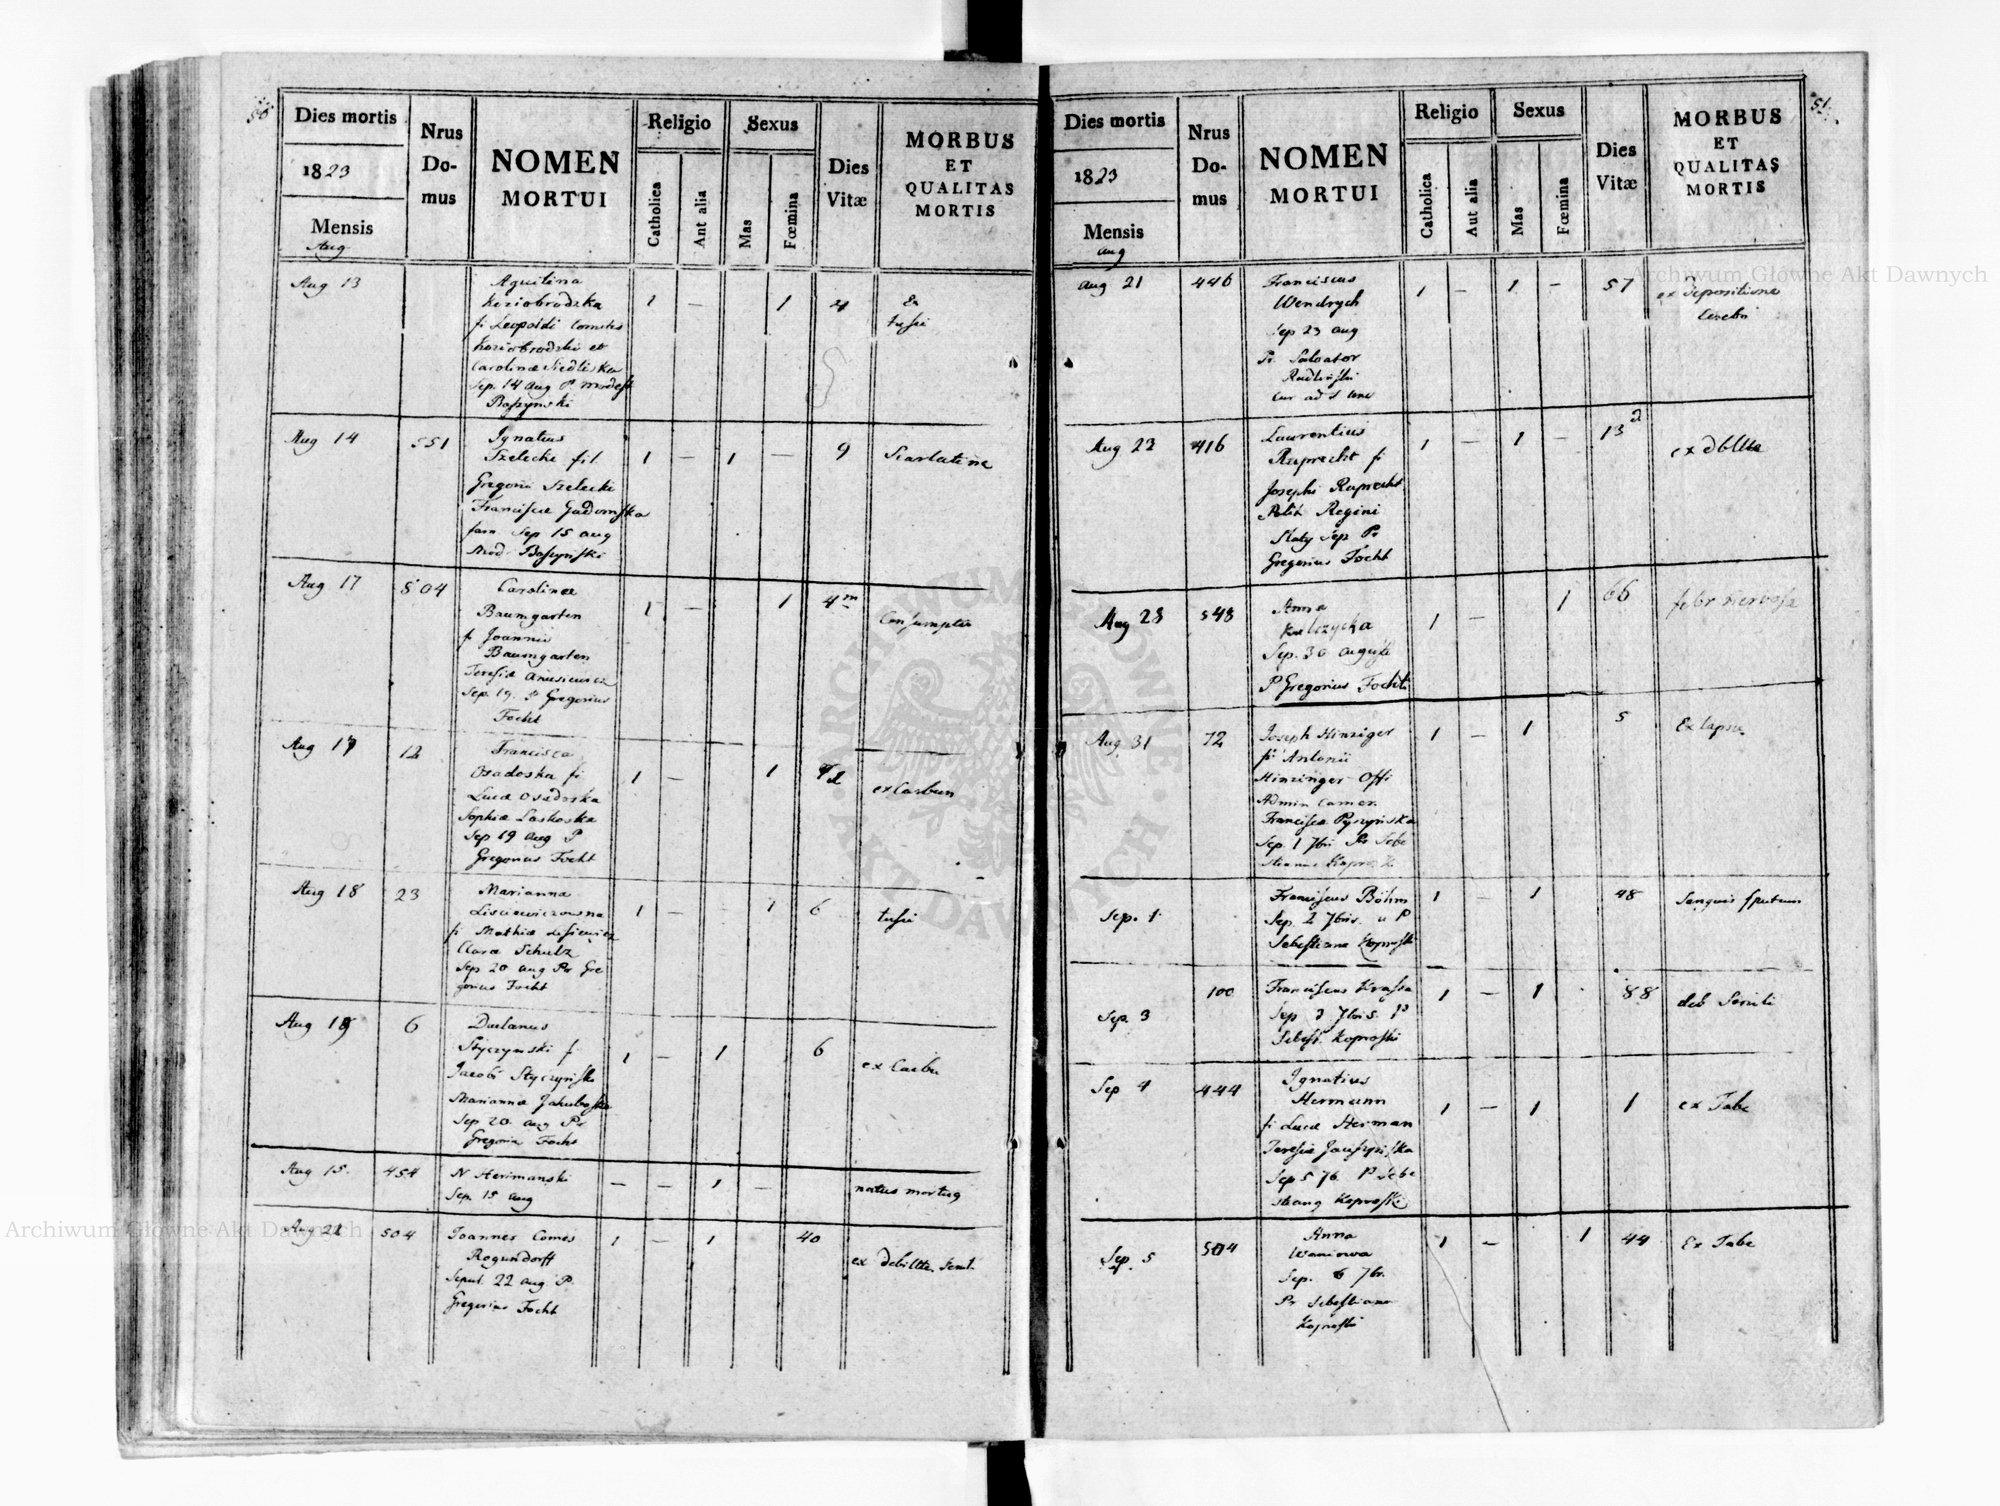 50
Dies mortis
1823
Mensis
Aug
Nrus
Do-
mus
NOMEN
MORTUI
Religio
Catholica
Ant alia
Sexus
Mas
Fœmina
Dies
Vitæ
MORBUS
ET
QUALITAS
MORTIS
Aug 13
Koziobrodzka
fi Leopoldi Comitis
Koziobrodzki et
Carolinæ Siedliska
Sep. 14 Aug P.
Baszynski
1 — 1 4
Ex
tussi
Aug 14 551
Ignatius
Szelecki fil.
Gregorii Szelecki
Sep 15 aug
Mod. Baszynski
1 — 1 — 9
Scarlatina
Aug 17 504
Carolinæ
Baumgarten
fi Joannis
Baumgarten
Sep. 19. P Gregorius
Focht
1 — 1 4m
Consumptio
Aug 17 12
Francisca
Osadoska fi
Lucæ Osadoska
Sophiæ Laskoska
Sep 19 aug P
Gregorius Focht
1 — 1
ex Carbun
Aug 18 23
Marianna
Lisciewiczowna
fi Mathiæ
Claræ Schultz
Sep 20 aug Pr Gre
gorius Focht
1 — — 1 6
tussi
Aug 19 6
Styczynski f
Jacobi
Mariannæ
Sep 20 aug Pr
Focht
1 — 1 6
ex Carbu
Aug 15. 454
N Herimanski
Sep. 15 aug
— — 1 —
natus mortuq
Aug 21 504
Joannes Comes
Rogundorff
Sepul. 22 aug P.
Gregorius Focht
1 — 1 40
ex
51
Dies mortis
1823
Mensis
aug
Nrus
Do-
mus
NOMEN
MORTUI
Religio
Catholica
Aut alia
Sexus
Mas
Fœmina
Dies
Vitæ
MORBUS
ET
QUALITAS
MORTIS
Aug 21 446
Franciscus
Wendrych
Sep 23 aug
Pr. Salvator
1 — 1 — 57
ex depositione
Aug 23 416
Laurentius
Ruprecht fi
Josephi Ruprecht
Sep Pr
Gregorius Focht
1 — 1 — 13 d
Aug 28 548
Anna
Sep. 30
P Gregorius Focht
1 — 1 66
febr nervosa
Aug 31 72
Joseph Hinziger
fi Antonii
Hinzinger Offi
Admin Camer.
Sep. 1 7bris Pr Sebe
1 — 1 5
Ex lapsu
Sep. 1.
Franciscus Böhm
Sep. 2 7bris. a P
Sebestiano Koproski
1 — 1 48
Sanguis sputum
Sep. 3 100
Franciscus Krassa
Sep 3 7bris. P
Sebest. Koproski
1 — 1 88
deb Senili
Sep 4 444
Ignatius
Hermann
fi Lucæ Herman
Sep 5 7b. P Sebe
stiang Koproski
1 — 1 1
ex Tabe
Sep. 5 504
Anna
Waniowa
Sep. 6 7br.
Pr Sebestiano
Koproski
1 — 1 44
Ex Tabe
Archiwum Główne Akt Dawnych
Archiwum Główne Akt Dawnych
ARCHIWUM GŁÓWNE
AKT DAWNYCH